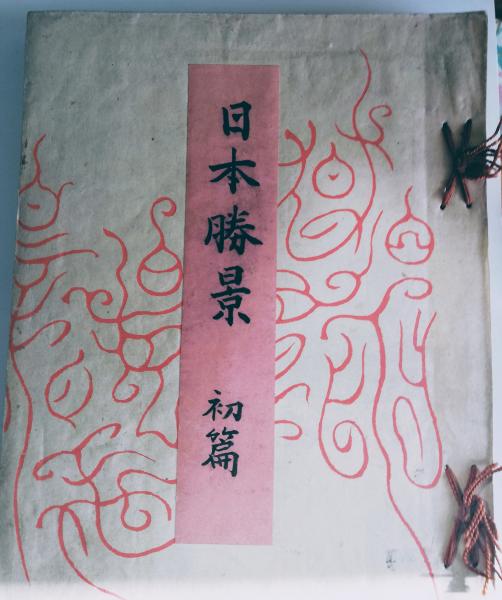 日本勝景
初篇